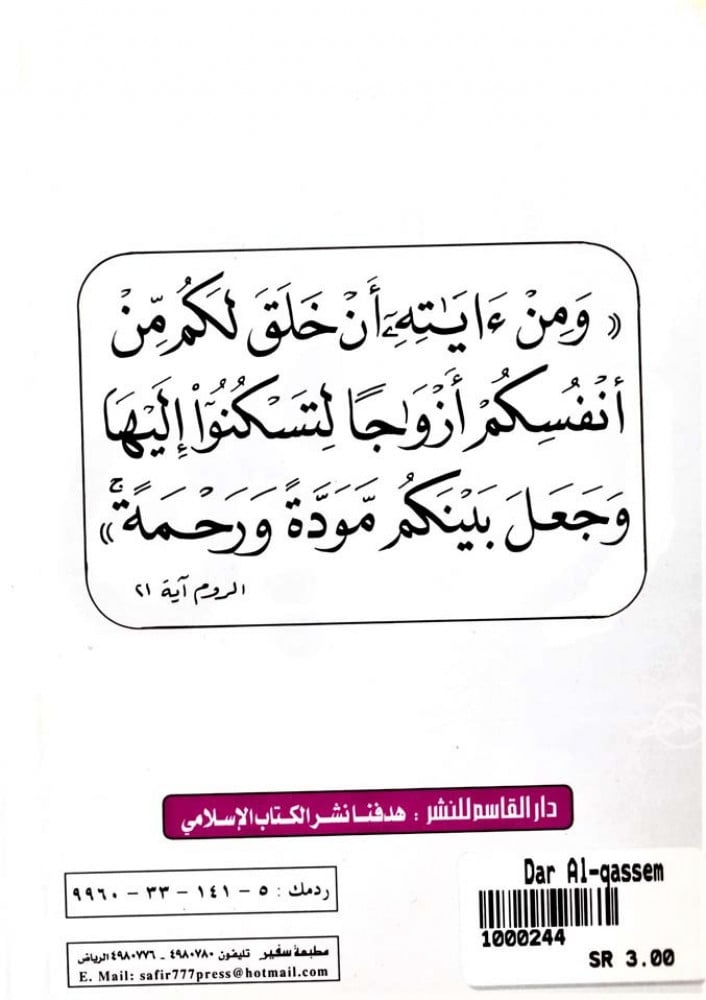 « وَمِنْ ءَايَٰتِهِۦٓ أَنْ خَلَقَ لَكُم مِّنْ
أَنْفُسِكُمْ أَزْوَٰجًا لِتَسْكُنُوٓا۟ إِلَيْهَا
وَجَعَلَ بَيْنَكُم مَّوَدَّةً وَرَحْمَةً ۚ »
الروم آية ٢١
دار القاسم للنشر : هدفنا نشر الكتاب الإسلامي
ردمك : ٥ - ١٤١ - ٣٣ - ٩٩٦٠
مطبعة سفير تليفون ٤٩٨٠٧٨٠ - ٤٩٨٠٧٧٦ الرياض
E. Mail: safir777press@hotmail.com
Dar Al-qassem
1000244
SR 3.00